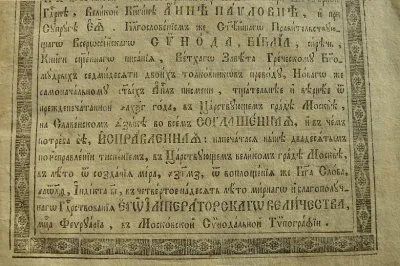 Гдⷭ҇нѣ, Великой Кнѧгинѣ АННѢ ПАВЛОВНѢ, и при
Сꙋпрꙋгѣ ЕѦ. Благословенїемъ же Свѧтѣйшагѡ Правительствꙋ-
ющагѡ Всероссїйскагѡ СѴНОДА, БІБЛІА, сирѣчь,
Книги сщ҃еннагѡ писанїѧ, Ветхагѡ Завѣта Греческомꙋ Бг҃о-
мꙋдрыхъ седмидесѧти двоихъ толковникѡвъ преводꙋ, Новагѡ же
самоначальномꙋ ст҃ыхъ Апⷭ҇лъ писмени, тщательнѣе и вѣрнѣе ѿ
преждепечатанноѧ года, въ Царствꙋющемъ градѣ Москвѣ,
на Славенскомъ ѧзыкѣ во всемъ СОГЛАШЕННАѦ, и въ чемъ
потреба бѣ, ИСПРАВЛЕННАѦ: напечатасѧ нынѣ двадесѧтымъ
по исправленїи тисненїемъ, въ Царствꙋющемъ великомъ градѣ Москвѣ,
въ лѣто ѿ созданїѧ мїра, ѿ воплощенїѧ же Бг҃а Слова,
Індїкта въ четвертоенадесѧть лѣто мирнагѡ и благополꙋч-
нагѡ Гдⷭ҇рствованїѧ ЕГѠ ІМПЕРАТОРСКАГѠ ВЕЛИЧЕСТВА,
мцⷭ҇а Феврꙋарїа, въ Московской Сѵнодальной Тѵпографїи.